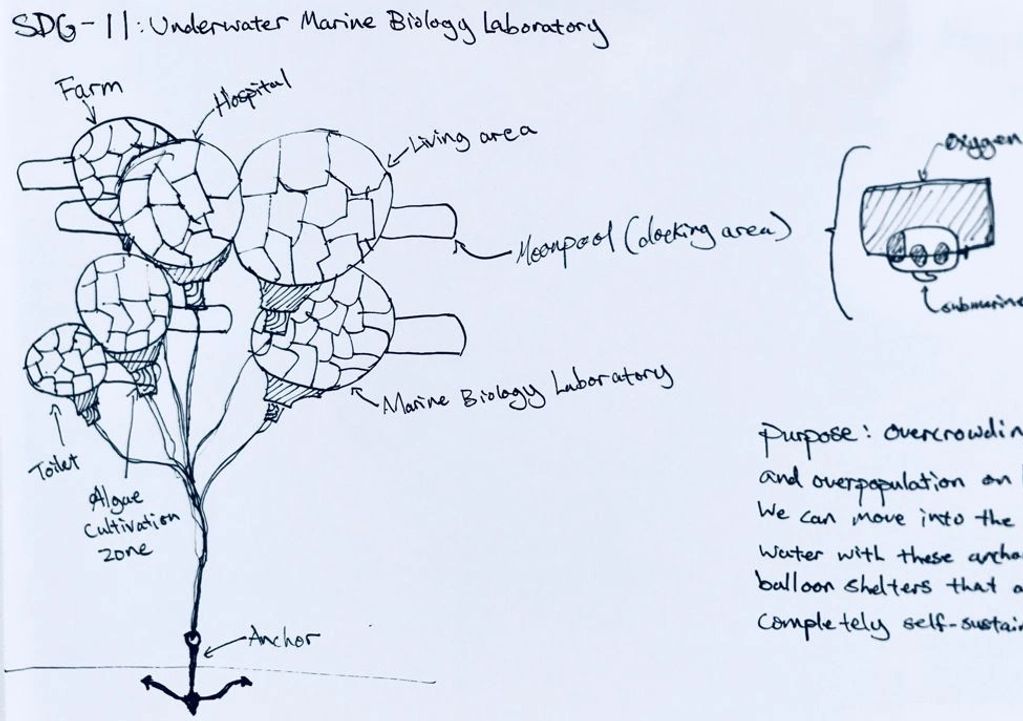 SDG-11: Underwater Marine Biology Laboratory
Farm
Hospital
Living area
Oxygen
Moonpool (docking area)
submarine
Marine Biology Laboratory
Toilet
Algae
Cultivation
zone
Anchor
Purpose: overcrowdin
and overpopulation on
We can move into the
water with these ancho
balloon shelters that a
completely self-sustain